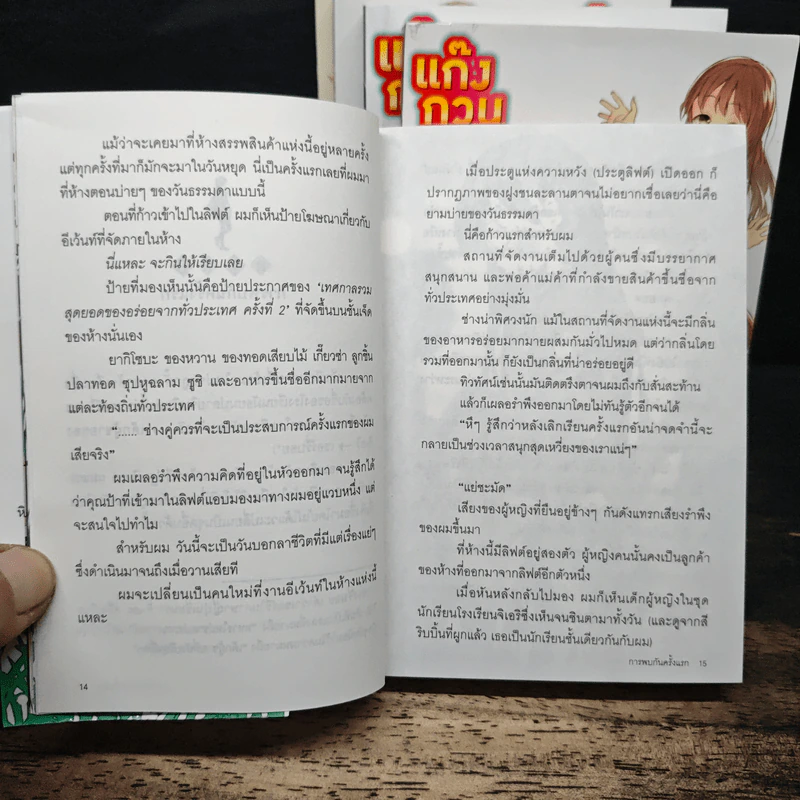 แก๊ง
กวน
แม้ว่าจะเคยมาที่ห้างสรรพสินค้าแห่งนี้อยู่หลายครั้ง
แต่ทุกครั้งที่มาก็มักจะมาในวันหยุด นี่เป็นครั้งแรกเลยที่ผมมา
ที่ห้างตอนบ่ายๆ ของวันธรรมดาแบบนี้
ตอนที่ก้าวเข้าไปในลิฟต์ ผมก็เห็นป้ายโฆษณาเกี่ยวกับ
อีเว้นท์ที่จัดภายในห้าง
นี่แหละ จะกินให้เรียบเลย
ป้ายที่มองเห็นนั้นคือป้ายประกาศของ ‘เทศกาลรวม
สุดยอดของอร่อยจากทั่วประเทศ ครั้งที่ 2’ ที่จัดขึ้นบนชั้นเจ็ด
ของห้างนั่นเอง
ยากิโซบะ ของหวาน ของทอดเสียบไม้ เกี๊ยวซ่า ลูกชิ้น
ปลาทอด ซุปหูฉลาม ซูชิ และอาหารขึ้นชื่ออีกมากมายจาก
แต่ละท้องถิ่นทั่วประเทศ
“...... ช่างคู่ควรที่จะเป็นประสบการณ์ครั้งแรกของผม
เสียจริง”
ผมเผลอรำพึงความคิดที่อยู่ในหัวออกมา จนรู้สึกได้
ว่าคุณป้าที่เข้ามาในลิฟต์แอบมองมาทางผมอยู่แวบหนึ่ง แต่
จะสนใจไปทำไม
สำหรับผม วันนี้จะเป็นวันบอกลาชีวิตที่มีแต่เรื่องแย่ๆ
ซึ่งดำเนินมาจนถึงเมื่อวานเสียที
ผมจะเปลี่ยนเป็นคนใหม่ที่งานอีเว้นท์ในห้างแห่งนี้
แหละ
14
เมื่อประตูแห่งความหวัง (ประตูลิฟต์) เปิดออก ก็
ปรากฏภาพของฝูงชนละลานตาจนไม่อยากเชื่อเลยว่านี่คือ
ยามบ่ายของวันธรรมดา
นี่คือก้าวแรกสำหรับผม
สถานที่จัดงานเต็มไปด้วยผู้คนซึ่งมีบรรยากาศ
สนุกสนาน และพ่อค้าแม่ค้าที่กำลังขายสินค้าขึ้นชื่อจาก
ทั่วประเทศอย่างมุ่งมั่น
ช่างน่าพิศวงนัก แม้ในสถานที่จัดงานแห่งนี้จะมีกลิ่น
ของอาหารอร่อยมากมายผสมกันมั่วไปหมด แต่ว่ากลิ่นโดย
รวมที่ออกมานั้น ก็ยังเป็นกลิ่นที่น่าอร่อยอยู่ดี
ทิวทัศน์เช่นนั้นมันติดตรึงตาจนผมถึงกับสั่นสะท้าน
แล้วก็เผลอรำพึงออกมาโดยไม่ทันรู้ตัวอีกจนได้
“หึๆ รู้สึกว่าหลังเลิกเรียนครั้งแรกอันน่าจดจำนี้จะ
กลายเป็นช่วงเวลาสนุกสุดเหวี่ยงของเราแน่ๆ”
“แย่ชะมัด”
เสียงของผู้หญิงที่ยืนอยู่ข้างๆ กันดังแทรกเสียงรำพึง
ของผมขึ้นมา
ที่ห้างนี้มีลิฟต์อยู่สองตัว ผู้หญิงคนนั้นคงเป็นลูกค้า
ของห้างที่ออกมาจากลิฟต์อีกตัวหนึ่ง
เมื่อหันหลังกลับไปมอง ผมก็เห็นเด็กผู้หญิงในชุด
นักเรียนโรงเรียนจิเอริซึ่งเห็นจนชินตามาทั้งวัน (และดูจากสี
ริบบิ้นที่ผูกแล้ว เธอเป็นนักเรียนชั้นเดียวกันกับผม)
การพบกันครั้งแรก 15